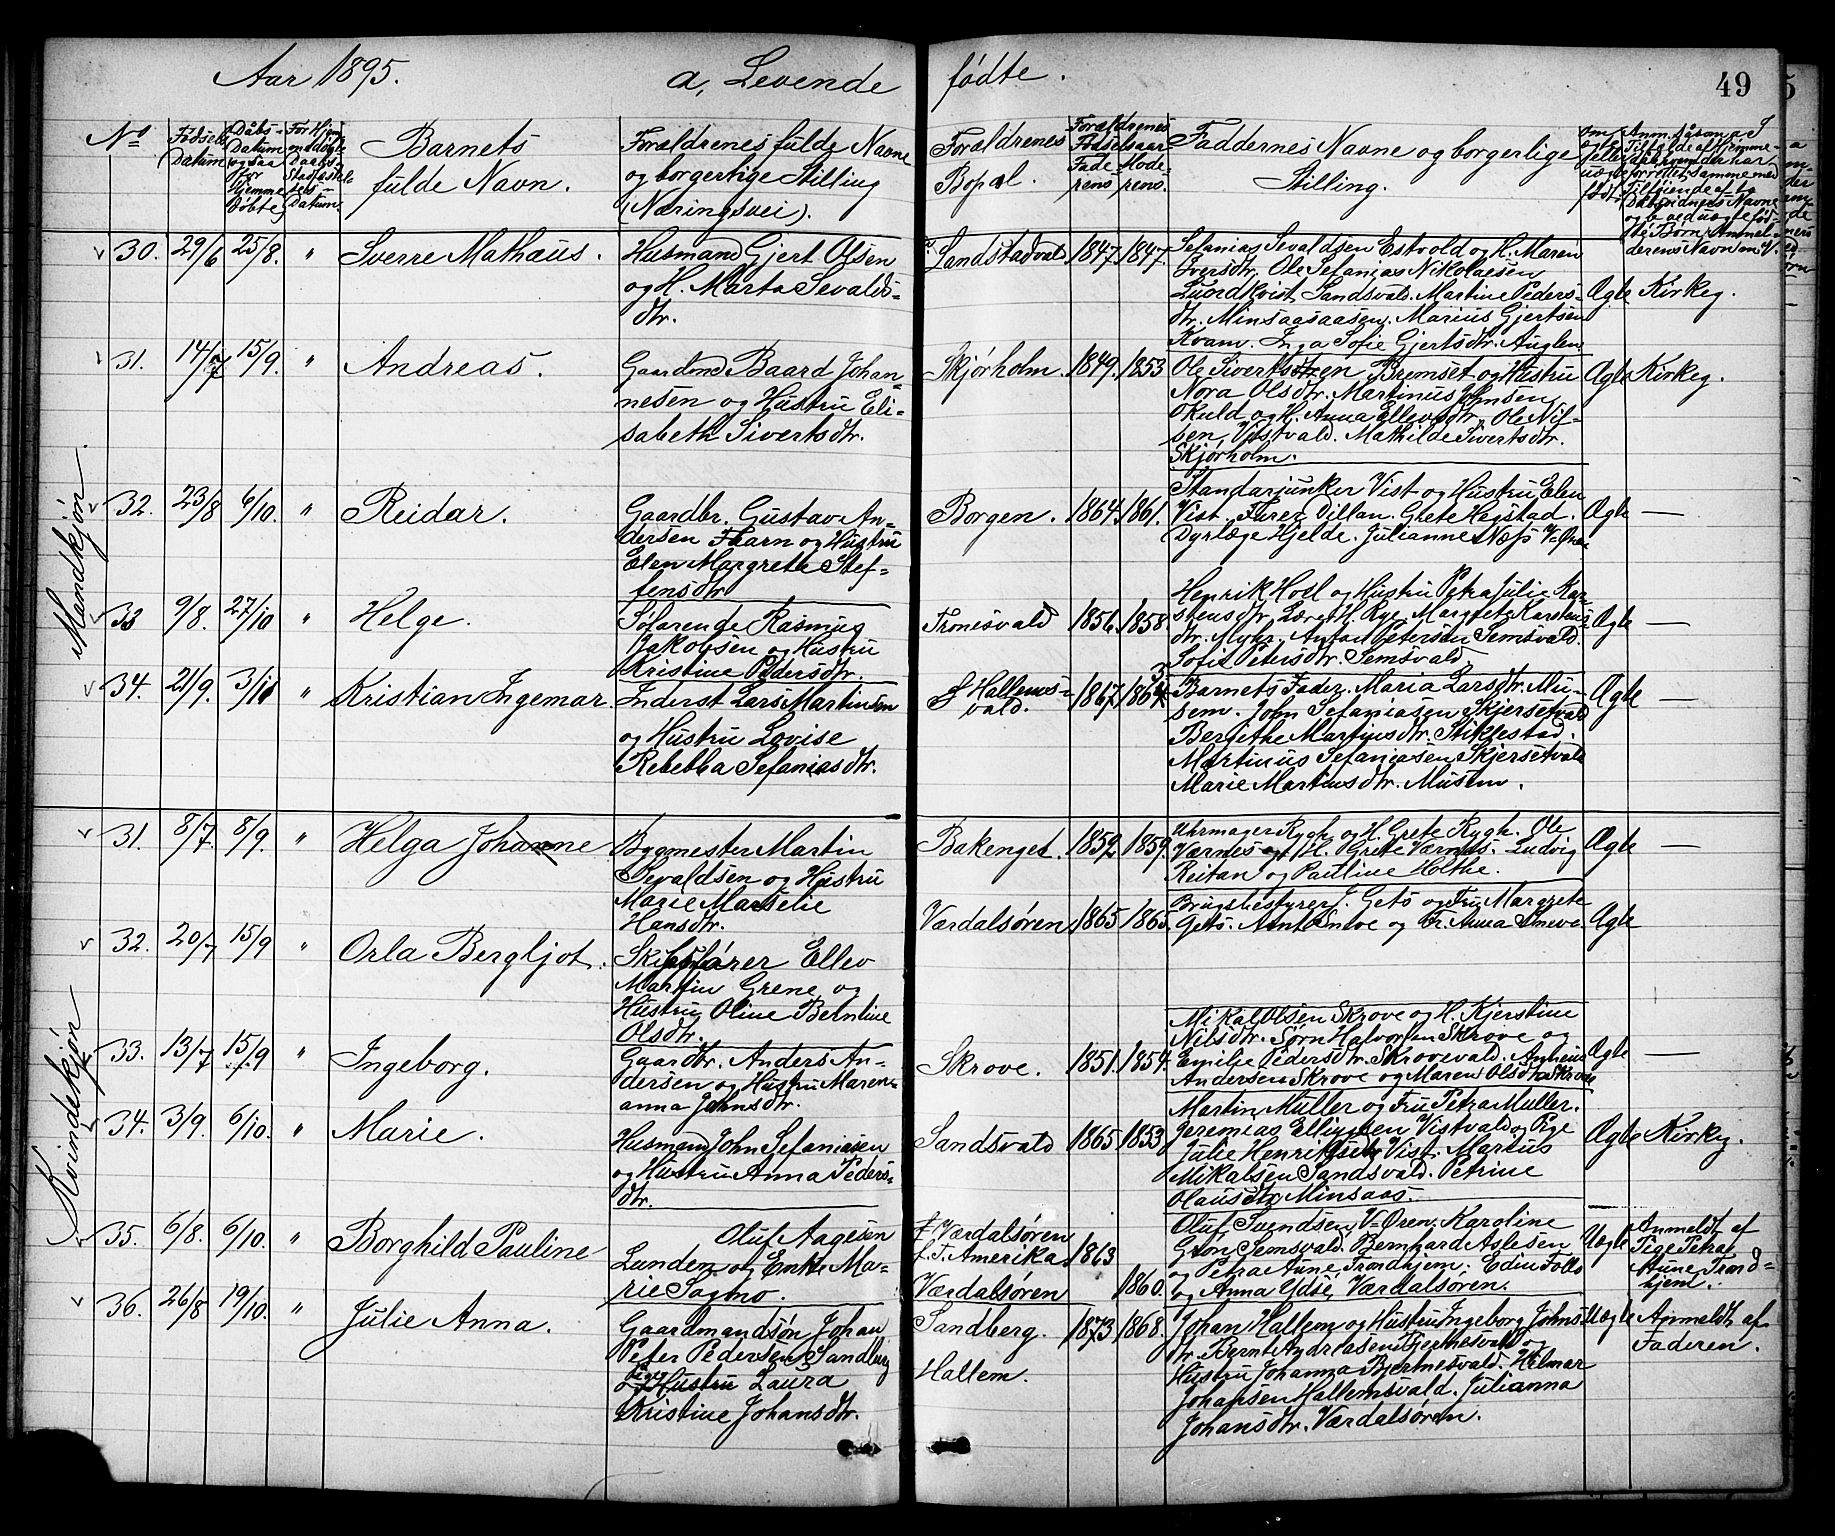 Aar 1895. a, Levende fødte. 49
No
Fødsels Datum
Daabs-Datum ogsaa for Hjemmedøbte
For Hjemmedøbte Daabs Stadfæstelses Datum.
Barnets fulde Navn.
Forældrenes fulde Navne og borgerlige Stilling (Næringsvei).
Forældrenes Bopæl.
Forældrenes Fødselsaar Faderens Moderens.
Faddernes Navne og borgerlige Stilling.
Mandkjøn.
30. 29/6 25/8. " Sverre Mathæus. Husmand Gjert Olsen
og H. Marta Sevalds-
dtr.
Sandstadvald 1847. 1847.
Sefanias Sevaldsen Estvold og H. Maren
Iversdtr. Ole Sefanias Nikolaesen
Sandsvald. Martine Peders-
dtr. Minsaasaasen. Marius Gjertsen
Kvam. Inga Sofie Gjertsdtr. Auglen.
Ægte Kirkeg.
31. 14/7 15/9. " Andreas. Gaardmd Baard Johan-
nesen og Hustru Eli-
sabeth Sivertsdtr.
Skjørholm. 1849. 1853
Ole Sivertsen Bremset og Hustru
Nora Olsdtr. Martinus Johnsen
Okuld og H. Anna Ellevsdtr. Ole Nil-
sen Vistvald. Mathilde Sivertsdtr.
Skjørholm.
Ægte Kirkeg.
32. 23/8 6/10. " Reidar. Gaardbr. Gustav An-
dersen Faarn og Hustru
Elen Margrete Stef-
fensdtr
Borgen. 1864. 1861.
Standarjunker Vist og Hustru Elen
Vist. Furer Dillan. Grete Hegstad.
Dyrlæge Hjelde. Julianne Næss V-Øren
Ægte —
33 9/8. 27/10 " Helge. Rasmus
Jakobsen og Hustru
Kristine Pedersdtr.
Tronesvald 1856. 1858.
Henrik Hoel og Hustru Petra Julie Kar-
stensdtr. Margrete Karstens-
dtr. Myhr. Anton Petersen Semsvald.
Sofie Petersdtr. Semsvald
Ægte —
34. 21/9. 3/11 " Kristian Ingemar. Inderst Lars Martinsen
og Hustru Lovise
Rebekka Sefaniasdtr.
Hallems-
vald. 1867.
Barnets Fader. Maria Larsdtr. Mu-
sem. John Sefaniasen Skjersetvald
Bergithe Martinsdtr. Stiklestad.
Martinus Sefaniasen Skjersetvald
Marie Martinsdtr. Musem.
Ægte —
Kvindekjøn
31. 8/7. 8/9. " Helga Johanne Bygmester Martin
Sevaldsen og Hustru
Marie Marselie
Hansdtr.
Bakenget. 1852 1859.
Uhrmager Rygh og H. Grete Rygh. Ole
Værnes og H. Grete Værnes. Ludvig
Reitan og Pauline Holthe.
Ægte —
32. 20/7 15/9 " Orla Bergljot. Skibsfører Ellev
Martin Grene og
Hustru Oline Berntine
Olsdtr.
Værdalsøren 1865 1865.
Brugsbestyrer J. Getz og Fru Margrete
Getz. Anton og Fr. Anna
Ægte
33. 13/7 15/9 " Ingeborg. Gaardbr. Anders An-
dersen og Hustru Maren-
anna Johnsdtr.
Skrove. 1851. 1854.
Mikal Olsen Skrove og H. Kjerstine
Nilsdtr. Sørn Halvorsen Skrove og
Emilie Pedersdtr. Skrovevald.
Andersen Skrove og Maren Olsdtr. Skrove
Ægte —
34. 3/9. 6/10. " Marie. Husmand John Sefaniasen
og Hustru Anna Peders-
dtr.
Sandsvald 1865 1853
Martin Müller og Fru Petra Müller.
Jeremias Ellingsen Vistvald og Pige
Julie Henriksdtr Vist. Marius
Mikalsen Sandsvald. Petrine
Olausdtr Minsaas.
Ægte Kirkeg.
35. 6/8. 6/10. " Borghild Pauline Oluf Aagesen
Lunden og Enke Ma-
rie Sagmo.
Værdalsøren
f. T. Amerika 1863
Værdalsøren 1860.
Oluf Svendsen V-Øren. Karoline
Semsvald. Bernhard Aslesen
og Petra Aune Trondhjem.
og Anna Ydse, Værdalsøren.
Uægte Anmeldt af
Pige Petra
Aune Trond-
hjem.
36. 26/8 19/10. " Julie Anna. Gaardmandsøn Johan
Peter Pedersen Sandberg
og Hustru Laura
Kristine Johansdtr.
Sandberg. 1873 1868.
Hallem.
Johan Hallem og Hustru Ingeborg Johns-
dtr. Bernt Andreasen Bjertnesvald og
Hustru Johanna Bjertnesvald. Hilmar
Johansen Hallemsvald. Julianna
Johansdtr. Værdalsøren.
Uægte Anmeldt af
Faderen.